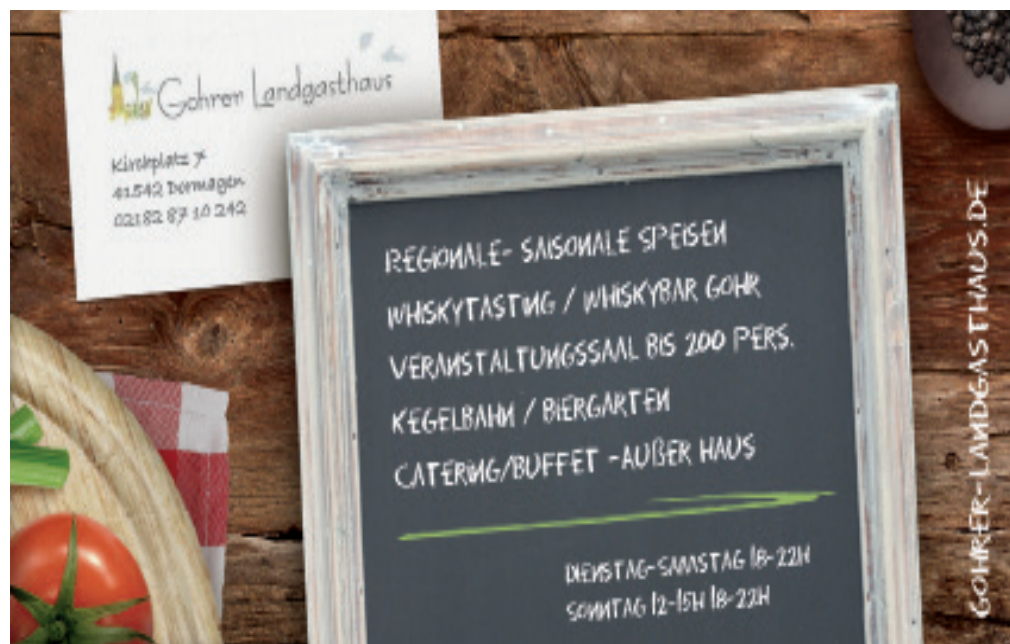 Gohrer Landgasthaus
Kirchplatz 7
41542 Dormagen
02182 87 10 242
REGIONALE- SAISONALE SPEISEN
WHISKYTASTING / WHISKYBAR GOHR
VERANSTALTUNGSSAAL BIS 200 PERS.
KEGELBAHN / BIERGARTEN
CATERING/BUFFET -AUßER HAUS
DIENSTAG-SAMSTAG 18-22H
SONNTAG 12-15H 18-22H
GOHRER-LANDGASTHAUS.DE